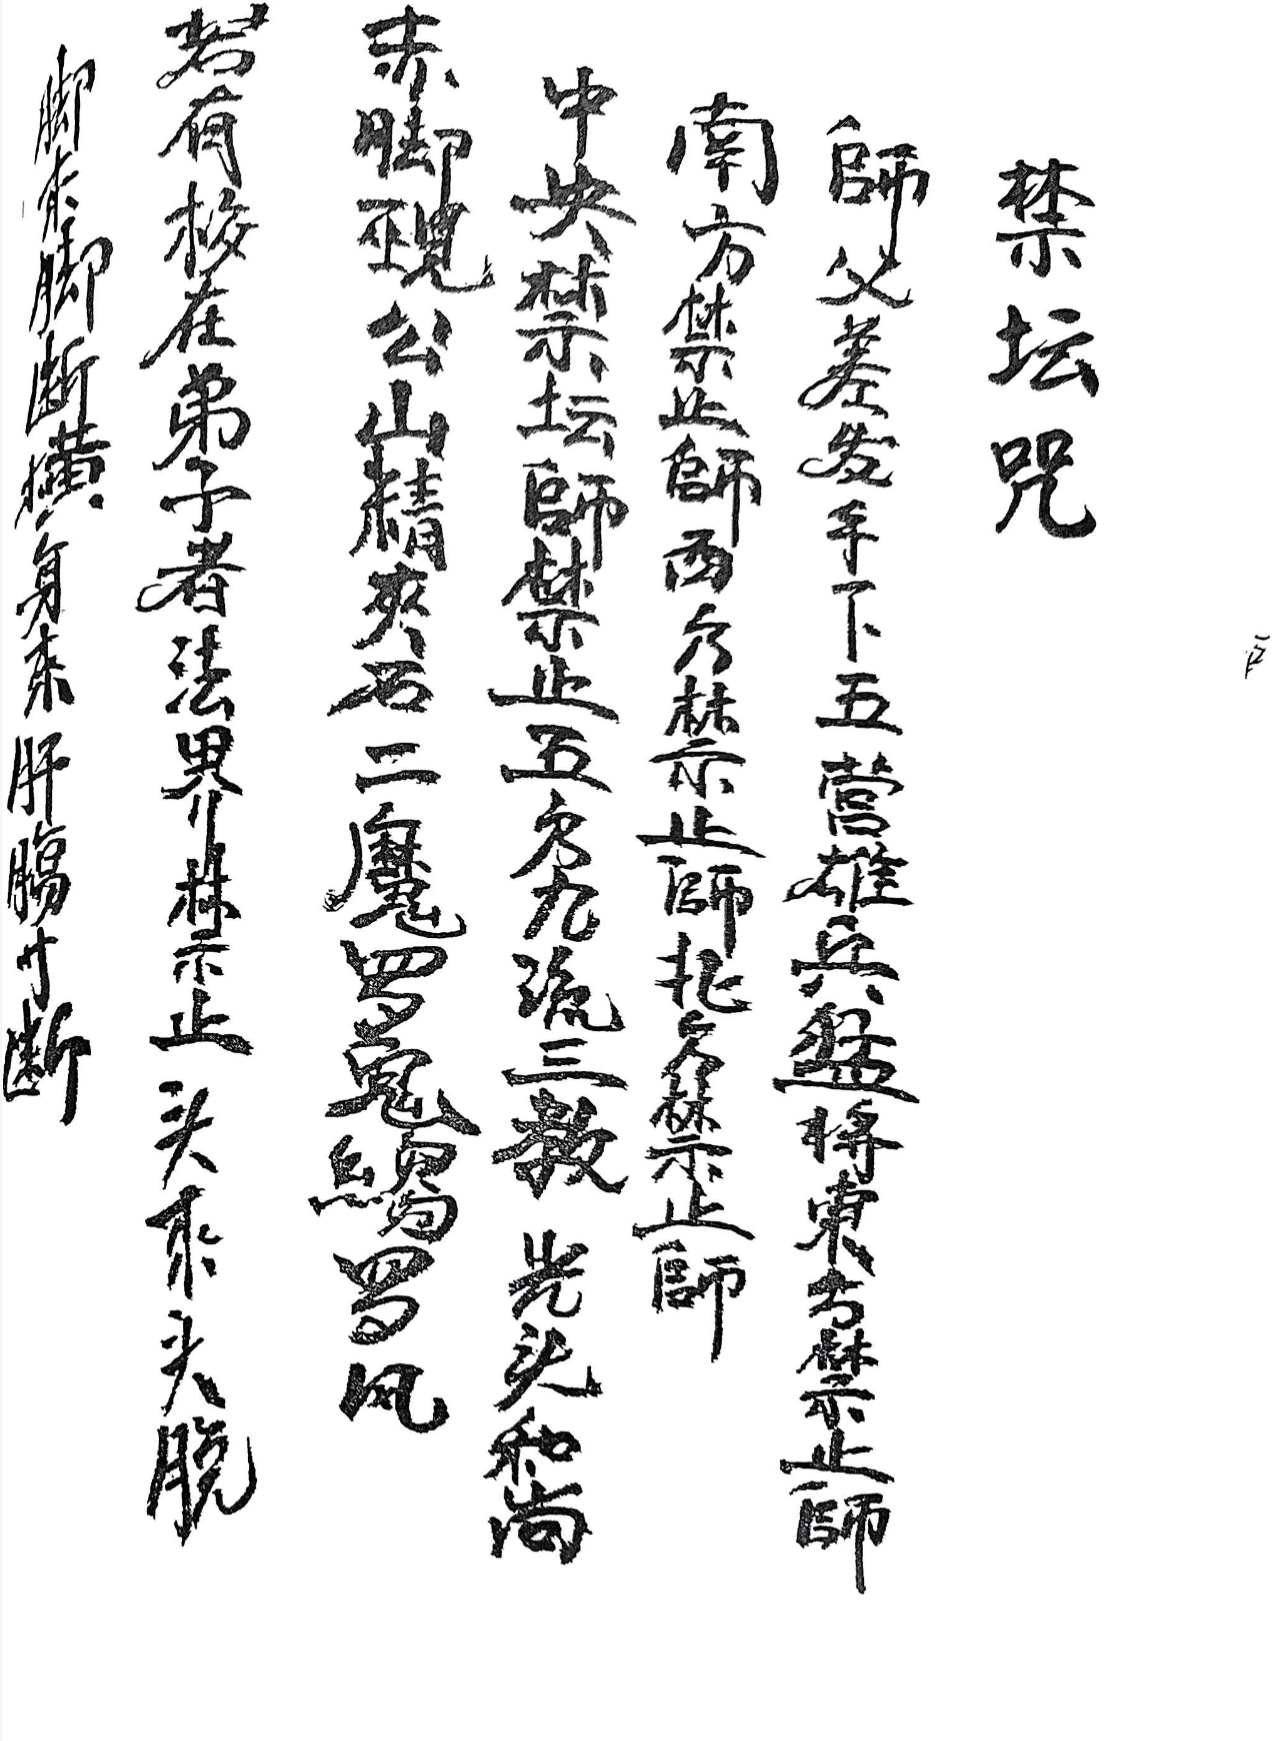 禁坛咒
師父差发手下五营雄兵猛将東方禁止師
南方禁止師西方禁止師北方禁止師
中央禁坛師禁止五方九流三教光头和尚
赤脚覡公山精夾石二魔罗鬼罗风
若有在弟子者法界禁止头来头脱
脚来脚断横身来肝腸寸断